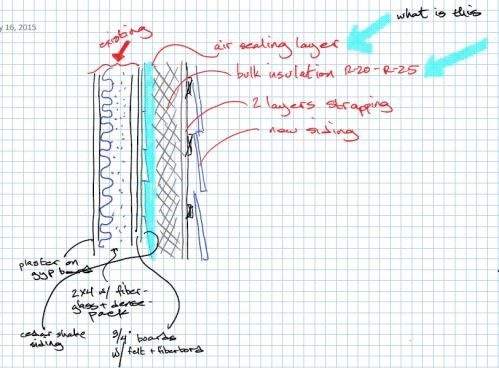 y 16, 2015
what is this
existing
air sealing layer
bulk insulation R-20-R-25
2 layers strapping
new siding
plaster on
gyp board
2x4 w/ fiber-
glass + dense-
pack
cedar shake
siding
3/4" boards
w/ felt + fiberbord